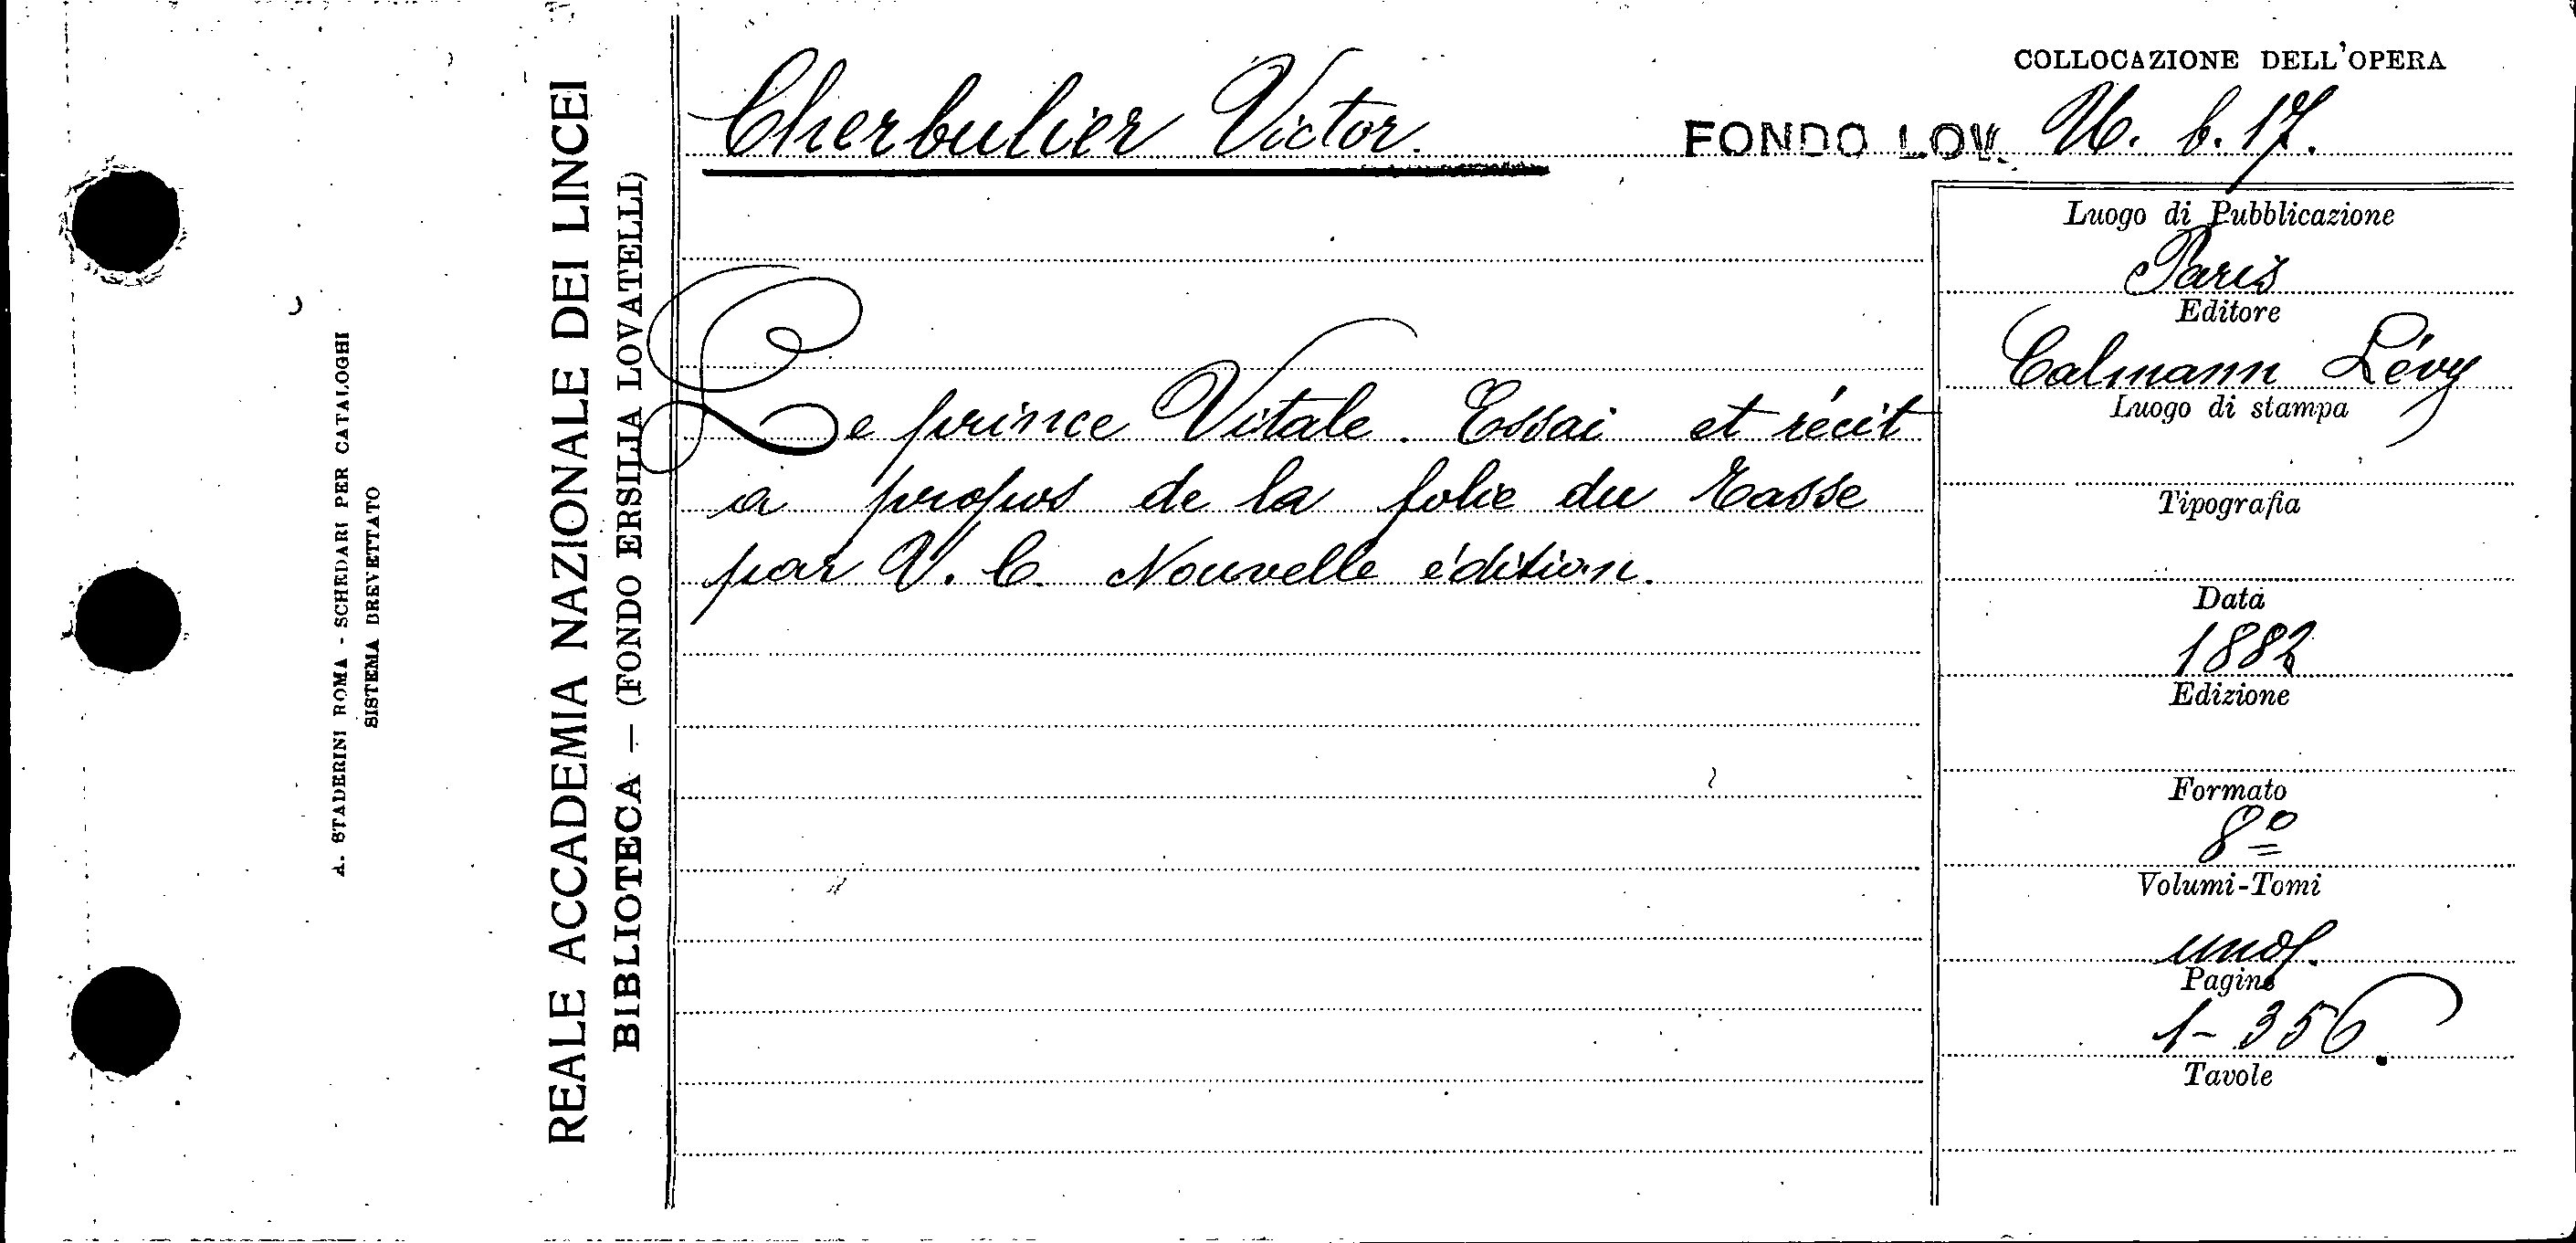 A. STADERINI ROMA - SCHEDARI PER CATALOGHI
SISTEMA BREVETTATO
REALE ACCADEMIA NAZIONALE DEI LINCEI
BIBLIOTECA — (FONDO ERSILIA LOVATELLI)
Cherbulier Victor.
COLLOCAZIONE DELL'OPERA
FONDO LOV. U. b. 17.
Le prince Vitale. Essai et récit
a propos de la folie du Tasse
par V. C. Nouvelle édition.
Luogo di Pubblicazione
Paris
Editore
Calmann Lévy
Luogo di stampa
Tipografia
Data
1882
Edizione
Formato
8º
Volumi-Tomi
Pagine
1-356.
Tavole